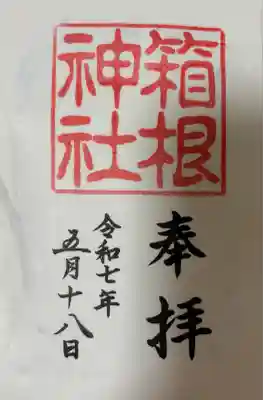 箱根
神社
奉拝
令和七年
五月十八日